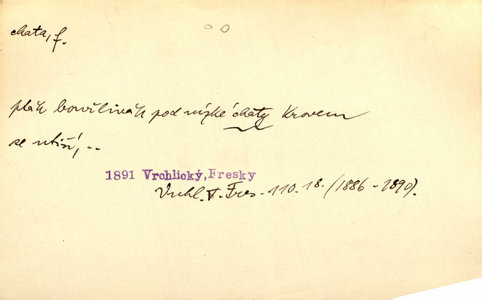 chata, f.
pták bouřlivák pod nízké chaty krovem
se utiší, ..
1891 Vrchlický, Fresky
Vrchl. Fres. 110.18. (1886-1890).